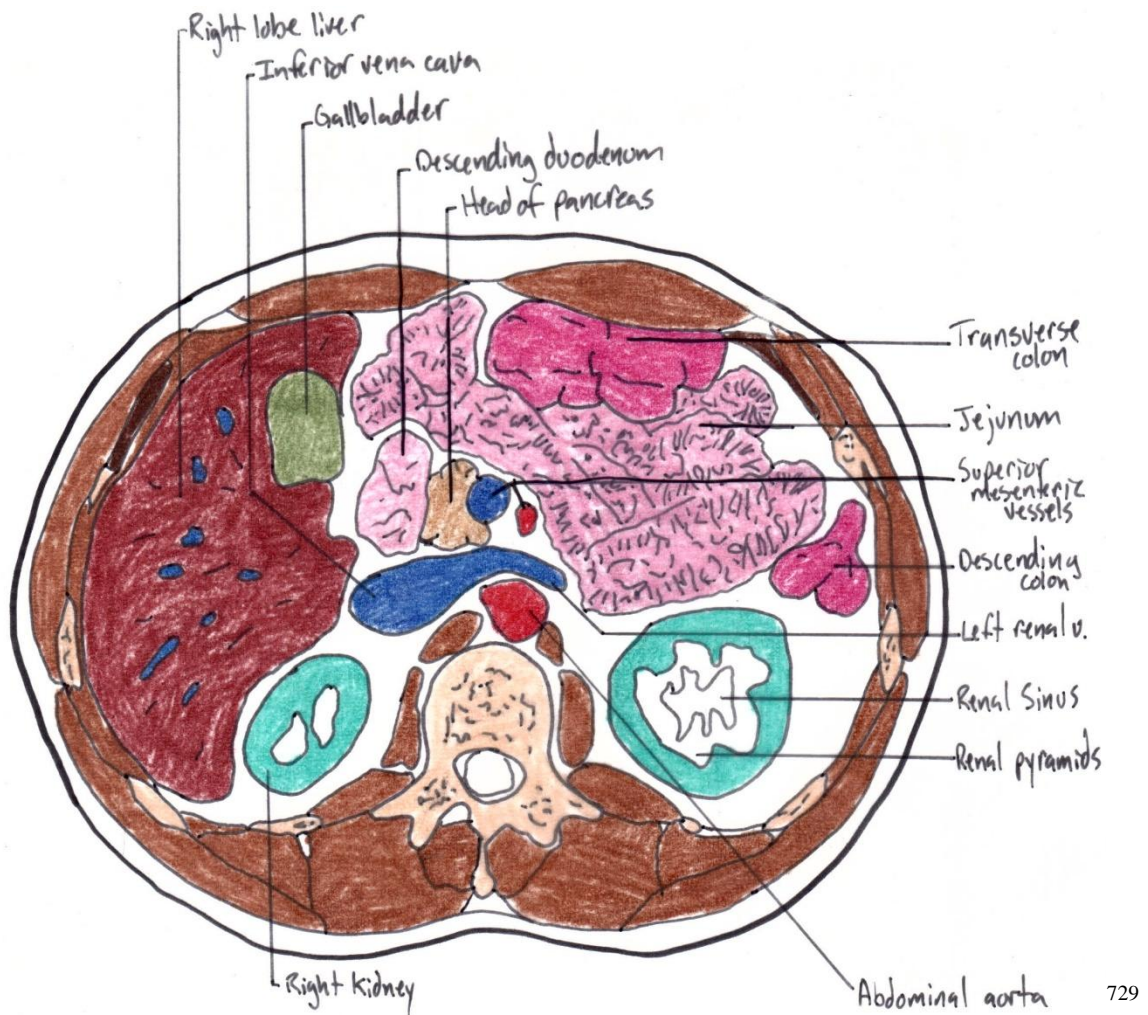 Right lobe liver
Inferior vena cava
Gallbladder
Descending duodenum
Head of pancreas
Transverse
colon
Jejunum
Superior
mesenteric
vessels
Descending
colon
Left renal v.
Renal Sinus
Renal pyramids
Right Kidney
Abdominal aorta
729